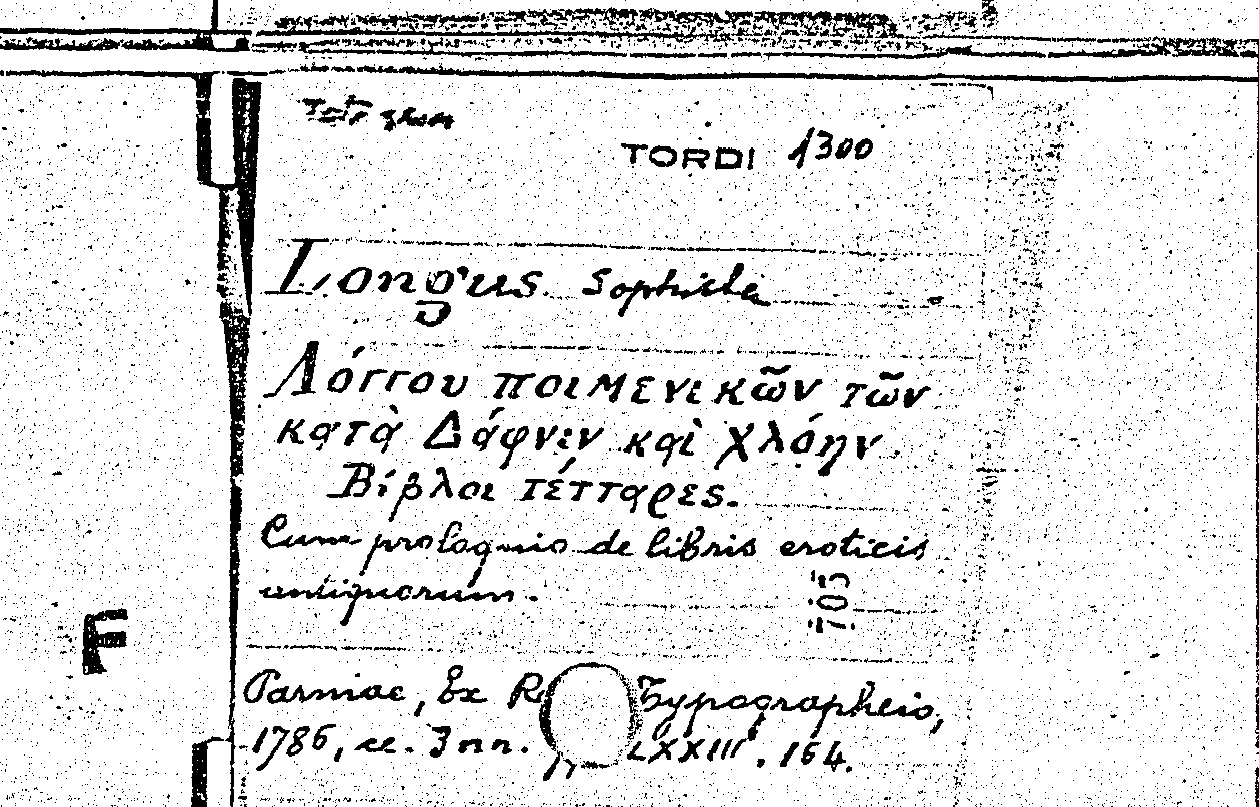 TORDI 1300
Longus Sophista
Λόγγου ποιμενικῶν τῶν
κατὰ Δάφνιν καὶ Χλόην
Βίβλοι τέτταρες.
Cum proloquio de libris eroticis
antiquorum.
105
F
Parmae, Ex R Typographeio,
1786, cc. 3 nn. LXXIII. 164.